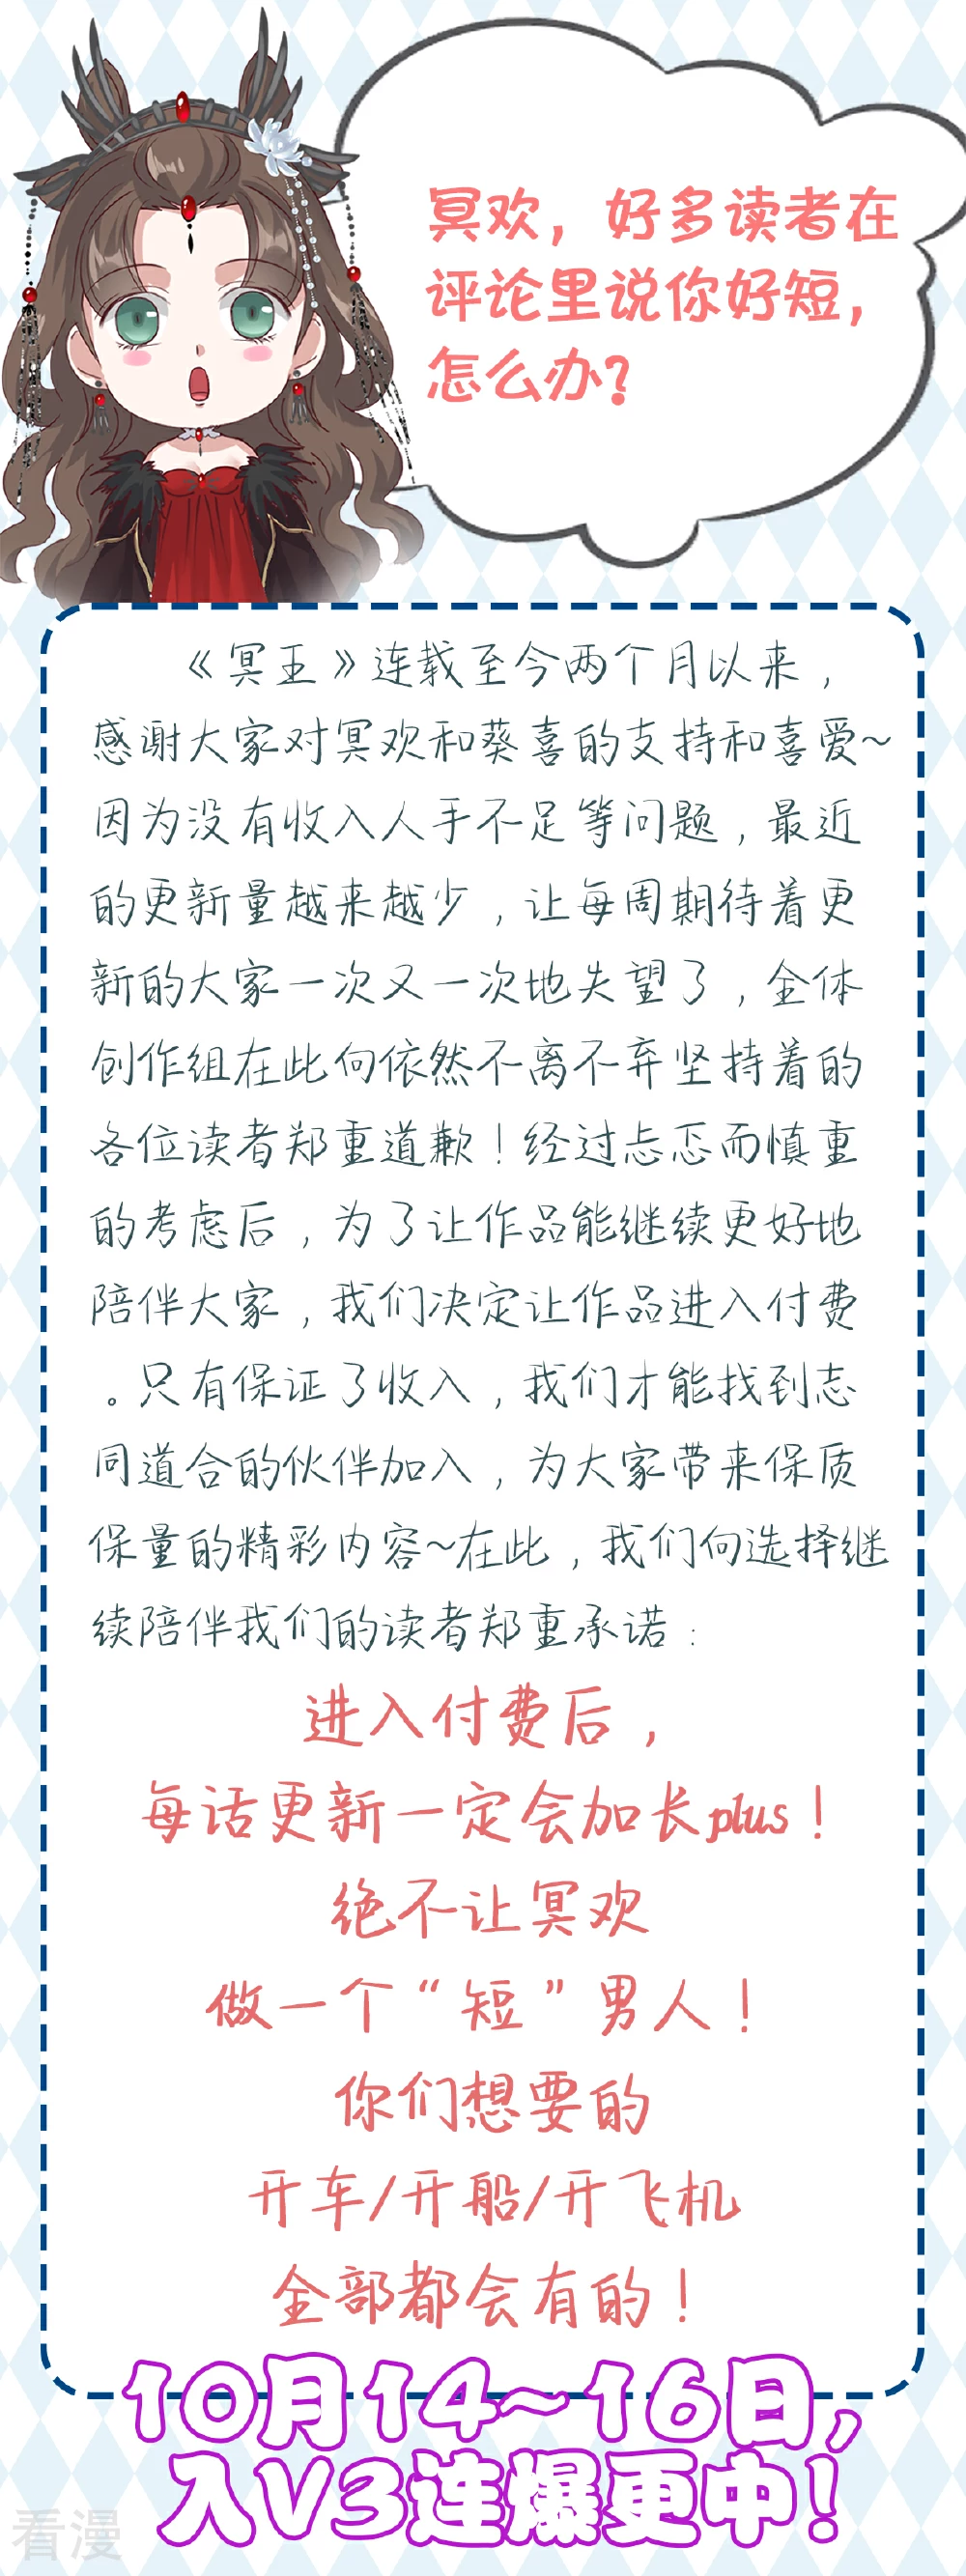 冥欢，好多读者在
评论里说你好短，
怎么办?
《冥王》连载至今两个月以来，
感谢大家对冥欢和葵喜的支持和喜爱~
因为没有收入人手不足等问题，最近
的更新量越来越少，让每周期待着更
新的大家一次又一次地失望了，全体
创作组在此向依然不离不弃坚持着的
各位读者郑重道歉！经过忐忑而慎重
的考虑后，为了让作品能继续更好地
陪伴大家，我们决定让作品进入付费
。只有保证了收入，我们才能找到志
同道合的伙伴加入，为大家带来保质
保量的精彩内容~在此，我们向选择继
续陪伴我们的读者郑重承诺：
进入付费后，
每话更新一定会加长plus！
绝不让冥欢
做一个“短”男人！
你们想要的
开车/开船/开飞机
全部都会有的！
10月14~16日，
入V3连爆更中！
看漫